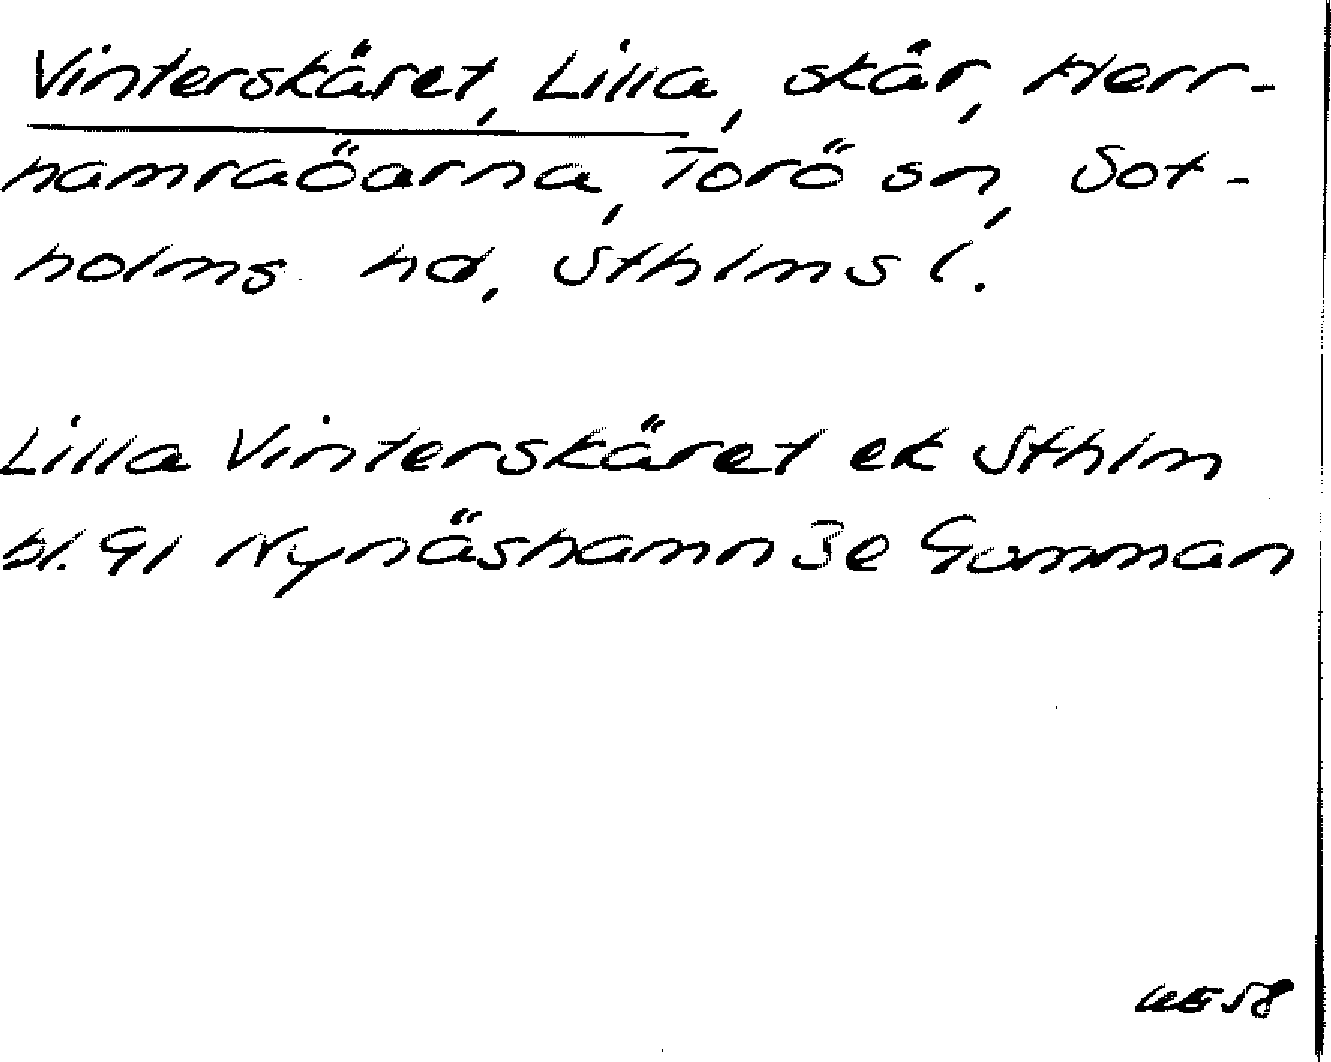 Vinterskäret, Lilla, skär, Herr-
hamraöarna, Torö sn, Sot-
holms hd, Sthlms l.
Lilla Vinterskäret ek Sthlm
bl. 91 Nynäshamn 3e Gunnan
58